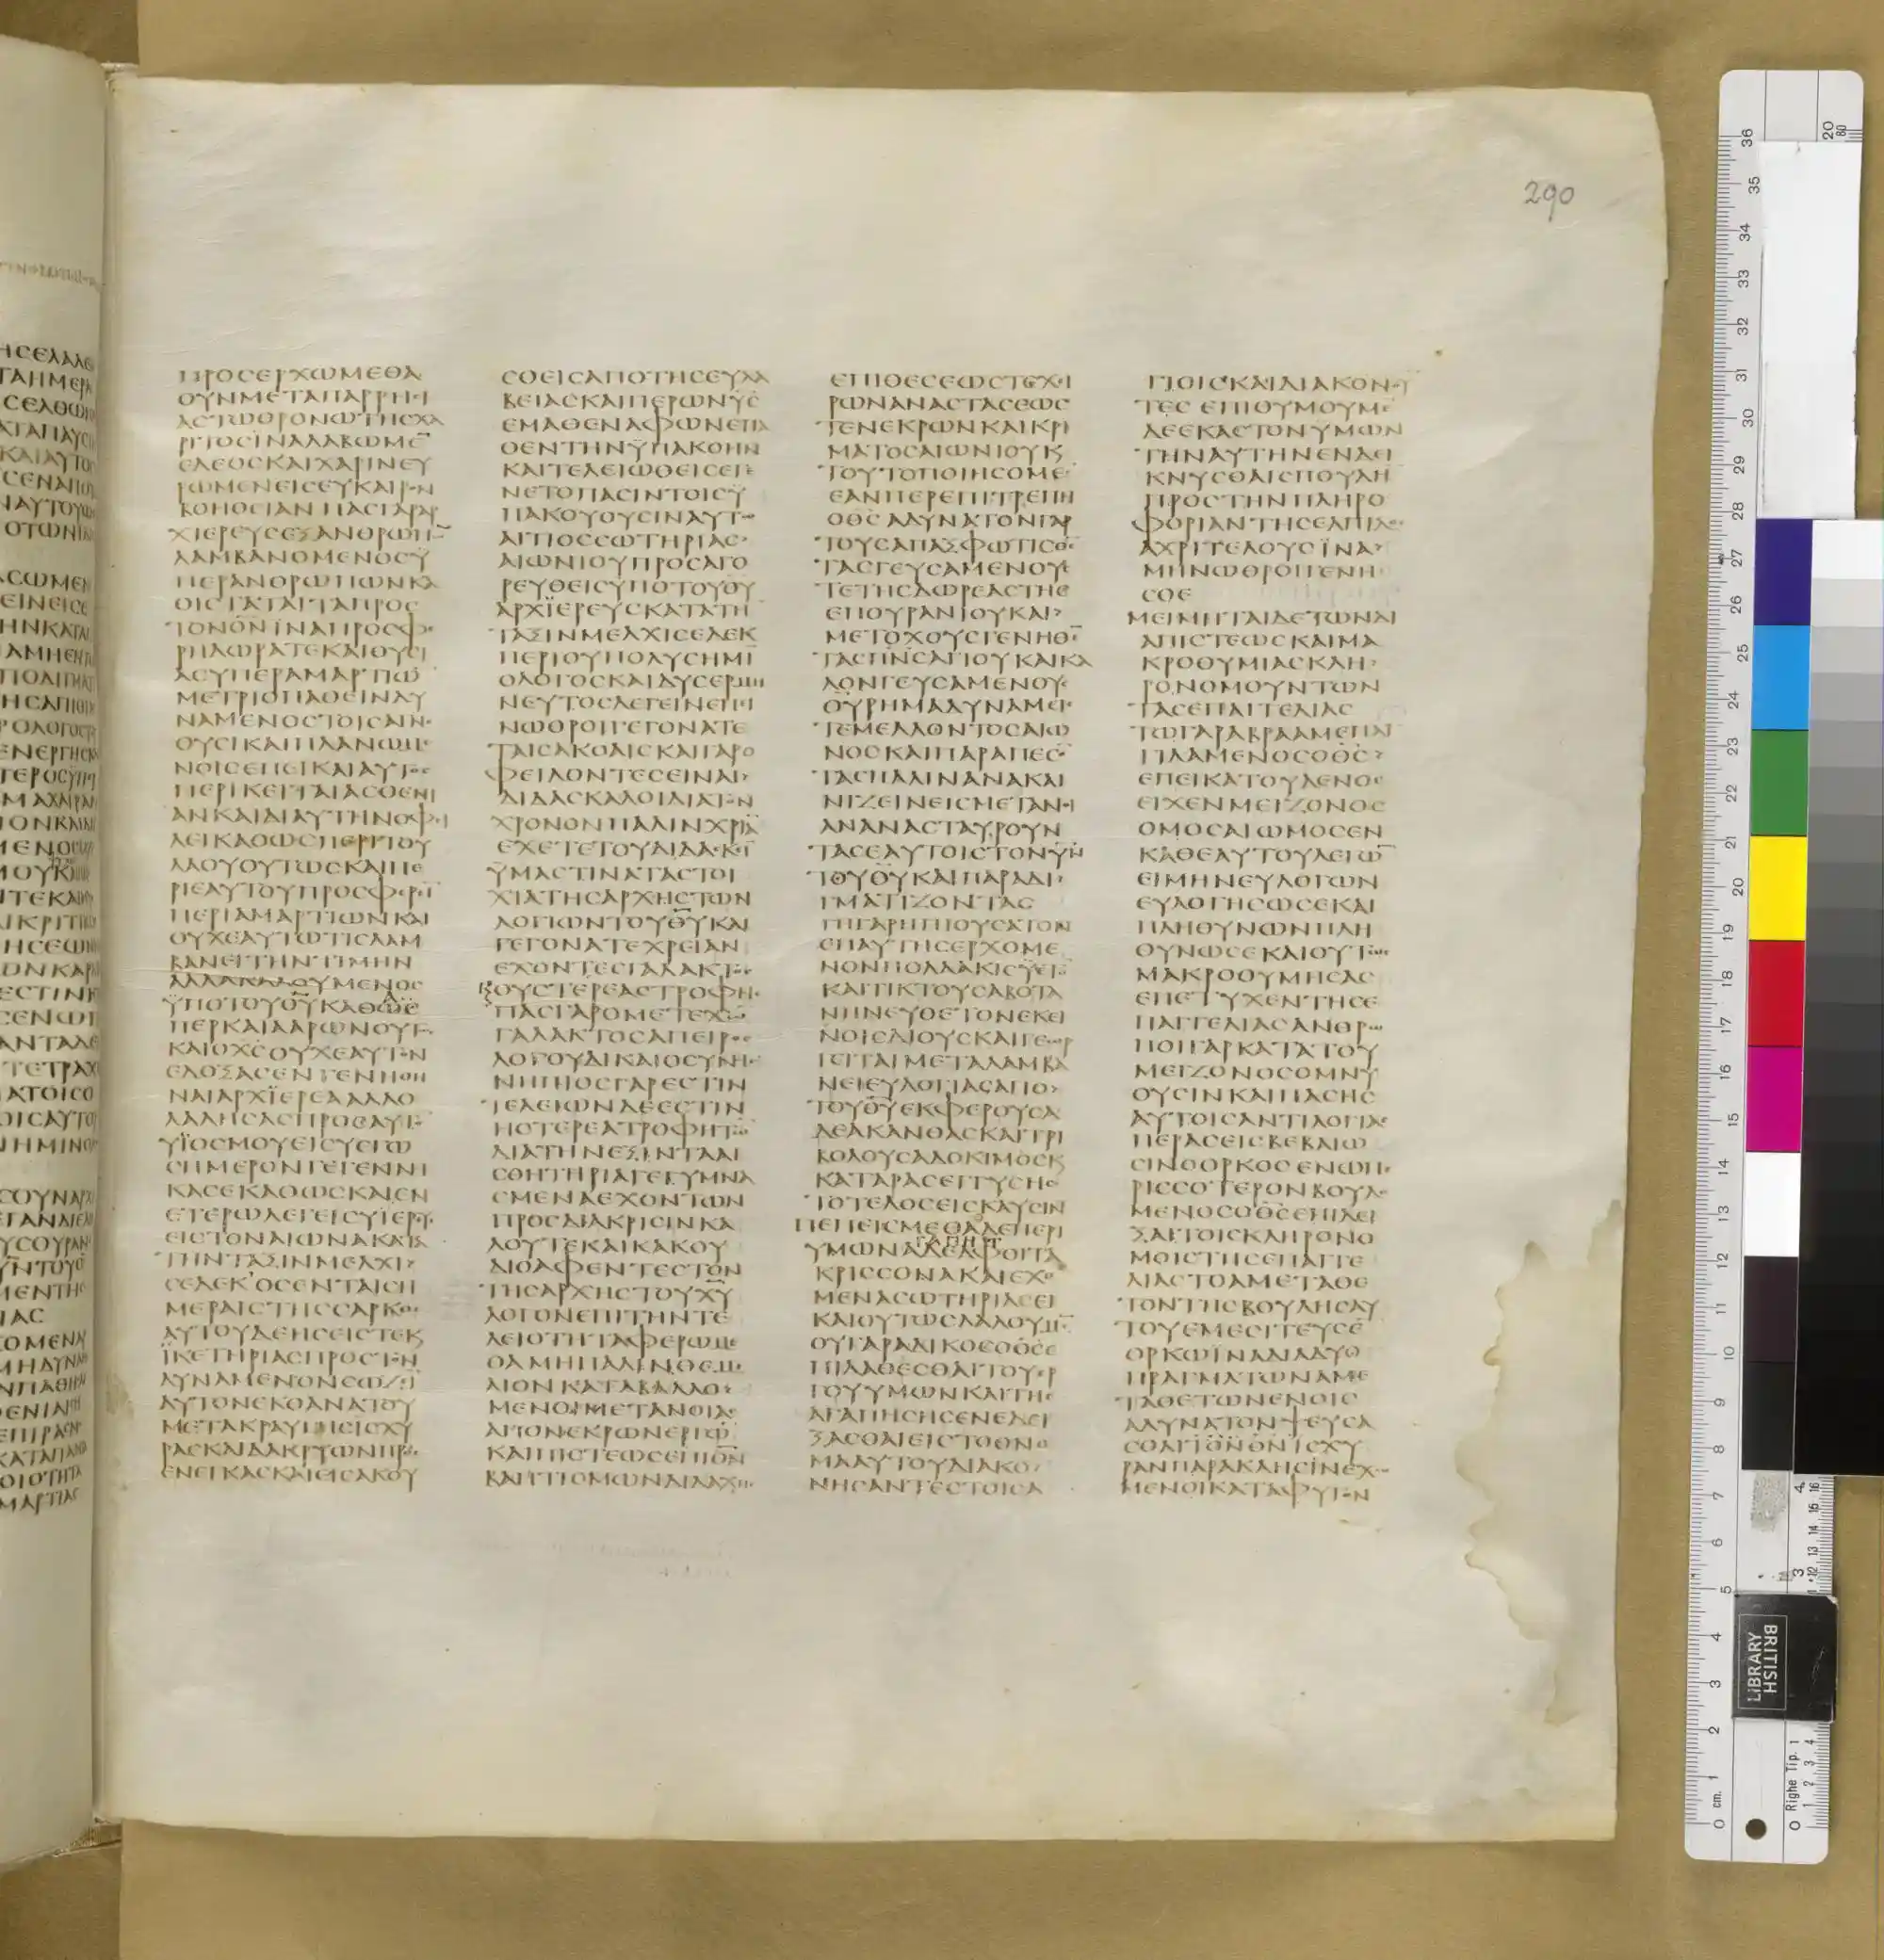 290
ΠΡΟϹΕΡΧΩΜΕΘΑ
ΟΥΝΜΕΤΑΠΑΡΡΗϹΙ
ΑϹΤΩΘΡΟΝΩΤΗϹΧΑ
ΡΙΤΟϹΪΝΑΛΑΒΩΜΕ̅
ΕΛΕΟϹΚΑΙΧΑΡΙΝΕΥ
ΡΩΜΕΝΕΙϹΕΥΚΑΙΡΟΝ
ΒΟΗΘΙΑΝΠΑϹΓΑΡΑΡ
ΧΙΕΡΕΥϹΕΞΑΝΘΡΩΠΩ̅
ΛΑΜΒΑΝΟΜΕΝΟϹΫ
ΠΕΡΑΝΘΡΩΠΩΝΚΑ
ΘΙϹΤΑΤΑΙΤΑΠΡΟϹ
ΤΟΝΘΝΪΝΑΠΡΟϹΦΕ
ΡΗΔΩΡΑΤΕΚΑΙΘΥϹΙ
ΑϹΥΠΕΡΑΜΑΡΤΙΩ̅
ΜΕΤΡΙΟΠΑΘΕΙΝΔΥ
ΝΑΜΕΝΟϹΤΟΙϹΑΓΝΟ
ΟΥϹΙΚΑΙΠΛΑΝΩΜΕ
ΝΟΙϹΕΠΕΙΚΑΙΑΥΤΟϹ
ΠΕΡΙΚΕΙΤΑΙΑϹΘΕΝΙ
ΑΝΚΑΙΔΙΑΥΤΗΝΟΦΙ
ΛΕΙΚΑΘΩϹΠΕΡΙΤΟΥ
ΛΑΟΥΟΥΤΩϹΚΑΙΠΕ
ΡΙΕΑΥΤΟΥΠΡΟϹΦΕΡΙ̅
ΠΕΡΙΑΜΑΡΤΙΩΝΚΑΙ
ΟΥΧΕΑΥΤΩΤΙϹΛΑΜ
ΒΑΝΕΙΤΗΝΤΙΜΗΝ
ΑΛΛΑΚΑΛΟΥΜΕΝΟϹ
ΫΠΟΤΟΥΘΥΚΑΘΩϹ
ΠΕΡΚΑΙΑΑΡΩΝΟΥΤΩ
ΚΑΙΟΧϹΟΥΧΕΑΥΤΟΝ
ΕΔΟΞΑϹΕΝΓΕΝΗΘΗ
ΝΑΙΑΡΧΪΕΡΕΑΑΛΛΟ
ΛΑΛΗϹΑϹΠΡΟϹΑΥΤΟ
ΥΪΟϹΜΟΥΕΙϹΥΕΓΩ
ϹΗΜΕΡΟΝΓΕΓΕΝΝΗ
ΚΑϹΕΚΑΘΩϹΚΑΙΕΝ
ΕΤΕΡΩΛΕΓΕΙϹΥΪΕΡΕΥϹ
ΕΙϹΤΟΝΑΙΩΝΑΚΑΤΑ
ΤΗΝΤΑΞΙΝΜΕΛΧΙ
ϹΕΔΕΚΟϹΕΝΤΑΙϹΗ
ΜΕΡΑΙϹΤΗϹϹΑΡΚΟϹ
ΑΥΤΟΥΔΕΗϹΕΙϹΤΕΚ
ΪΚΕΤΗΡΙΑϹΠΡΟϹΤΟΝ
ΔΥΝΑΜΕΝΟΝϹΩΖΙ̅
ΑΥΤΟΝΕΚΘΑΝΑΤΟΥ
ΜΕΤΑΚΡΑΥΓΗϹΙϹΧΥ
ΡΑϹΚΑΙΔΑΚΡΥΩΝΠΡΟϹ
ΕΝΕΓΚΑϹΚΑΙΕΙϹΑΚΟΥ
ϹΘΕΙϹΑΠΟΤΗϹΕΥΛΑ
ΒΕΙΑϹΚΑΙΠΕΡΩΝΥϹ
ΕΜΑΘΕΝΑΦΩΝΕΠΑ
ΘΕΝΤΗΝΫΠΑΚΟΗΝ
ΚΑΙΤΕΛΕΙΩΘΕΙϹΕΓΕ
ΝΕΤΟΠΑϹΙΝΤΟΙϹΫ
ΠΑΚΟΥΟΥϹΙΝΑΥΤΩ
ΑΙΤΙΟϹϹΩΤΗΡΙΑϹ
ΑΙΩΝΙΟΥΠΡΟϹΑΓΟ
ΡΕΥΘΕΙϹΥΠΟΤΟΥΘΥ
ΑΡΧΪΕΡΕΥϹΚΑΤΑΤΗ
ΤΑΞΙΝΜΕΛΧΙϹΕΔΕΚ
ΠΕΡΙΟΥΠΟΛΥϹΗΜΙ
ΟΛΟΓΟϹΚΑΙΔΥϹΕΡΜΗ
ΝΕΥΤΟϹΛΕΓΕΙΝΕΠΙ
ΝΩΘΡΟΙΓΕΓΟΝΑΤΕ
ΤΑΙϹΑΚΟΑΙϹΚΑΙΓΑΡΟ
ΦΕΙΛΟΝΤΕϹΕΙΝΑΙ
ΔΙΔΑϹΚΑΛΟΙΔΙΑΤΟΝ
ΧΡΟΝΟΝΠΑΛΙΝΧΡΙΑ
ΕΧΕΤΕΤΟΥΔΙΔΑϹΚΙ̅
ΫΜΑϹΤΙΝΑΤΑϹΤΟΙ
ΧΙΑΤΗϹΑΡΧΗϹΤΩΝ
ΛΟΓΙΩΝΤΟΥΘΥΚΑΙ
ΓΕΓΟΝΑΤΕΧΡΕΙΑΝ
ΕΧΟΝΤΕϹΓΑΛΑΚΤΟϹ
ΟΥϹΤΕΡΕΑϹΤΡΟΦΗϹ
ΠΑϹΓΑΡΟΜΕΤΕΧΩ
ΓΑΛΑΚΤΟϹΑΠΕΙΡΟϹ
ΛΟΓΟΥΔΙΚΑΙΟϹΥΝΗϹ
ΝΗΠΙΟϹΓΑΡΕϹΤΙΝ
ΤΕΛΕΙΩΝΔΕΕϹΤΙΝ
ΗϹΤΕΡΕΑΤΡΟΦΗΤΩ
ΔΙΑΤΗΝΕΞΙΝΤΑΑΙ
ϹΘΗΤΗΡΙΑΓΕΓΥΜΝΑ
ϹΜΕΝΑΕΧΟΝΤΩΝ
ΠΡΟϹΔΙΑΚΡΙϹΙΝΚΑ
ΛΟΥΤΕΚΑΙΚΑΚΟΥ
ΔΙΟΑΦΕΝΤΕϹΤΟΝ
ΤΗϹΑΡΧΗϹΤΟΥΧΥ
ΛΟΓΟΝΕΠΙΤΗΝΤΕ
ΛΕΙΟΤΗΤΑΦΕΡΩΜΕ
ΘΑΜΗΠΑΛΙΝΘΕΜΕ
ΛΙΟΝΚΑΤΑΒΑΛΛΟ
ΜΕΝΟΙΜΕΤΑΝΟΙΑϹ
ΑΠΟΝΕΚΡΩΝΕΡΓΩ̅
ΚΑΙΠΙϹΤΕΩϹΕΠΙΘΝ
ΒΑΠΤΙϹΜΩΝΔΙΔΑΧΗϹ
ΕΠΙΘΕϹΕΩϹΤΕΧΙ
ΡΩΝΑΝΑϹΤΑϹΕΩϹ
ΤΕΝΕΚΡΩΝΚΑΙΚΡΙ
ΜΑΤΟϹΑΙΩΝΙΟΥΚ
ΤΟΥΤΟΠΟΙΗϹΟΜΕ
ΕΑΝΠΕΡΕΠΙΤΡΕΠΗ
ΟΘϹΑΔΥΝΑΤΟΝΓΑΡ
ΤΟΥϹΑΠΑΞΦΩΤΙϹΘΕ
ΤΑϹΓΕΥϹΑΜΕΝΟΥϹ
ΤΕΤΗϹΔΩΡΕΑϹΤΗϹ
ΕΠΟΥΡΑΝΙΟΥΚΑΙ
ΜΕΤΟΧΟΥϹΓΕΝΗΘΕ̅
ΤΑϹΠΝϹΑΓΙΟΥΚΑΙΚΑ
ΛΟΝΓΕΥϹΑΜΕΝΟΥϹ
ΘΥΡΗΜΑΔΥΝΑΜΕΙϹ
ΤΕΜΕΛΛΟΝΤΟϹΑΙΩ
ΝΟϹΚΑΙΠΑΡΑΠΕϹΟ
ΤΑϹΠΑΛΙΝΑΝΑΚΑΙ
ΝΙΖΕΙΝΕΙϹΜΕΤΑΝΟΙ
ΑΝΑΝΑϹΤΑΥΡΟΥΝ
ΤΑϹΕΑΥΤΟΙϹΤΟΝΥΝ
ΤΟΥΘΥΚΑΙΠΑΡΑΔΙ
ΓΜΑΤΙΖΟΝΤΑϹ
ΓΗΓΑΡΗΠΙΟΥϹΑΤΟΝ
ΕΠΑΥΤΗϹΕΡΧΟΜΕ
ΝΟΝΠΟΛΛΑΚΙϹΫΕΤΟ
ΚΑΙΤΙΚΤΟΥϹΑΒΟΤΑ
ΝΗΝΕΥΘΕΤΟΝΕΚΕΙ
ΝΟΙϹΔΙΟΥϹΚΑΙΓΕΩΡ
ΓΕΙΤΑΙΜΕΤΑΛΑΜΒΑ
ΝΕΙΕΥΛΟΓΙΑϹΑΠΟ
ΤΟΥΘΥΕΚΦΕΡΟΥϹΑ
ΔΕΑΚΑΝΘΑϹΚΑΙΤΡΙ
ΒΟΛΟΥϹΑΔΟΚΙΜΟϹΚ
ΚΑΤΑΡΑϹΕΓΓΥϹΗϹ
ΤΟΤΕΛΟϹΕΙϹΚΑΥϹΙΝ
ΠΕΠΕΙϹΜΕΘΑΔΕΠΕΡΙ
ΓΑΠΗΤ
ΥΜΩΝΑΔΕΛΦΟΙΤΑ
ΚΡΙϹϹΟΝΑΚΑΙΕΧΟ
ΜΕΝΑϹΩΤΗΡΙΑϹΕΙ
ΚΑΙΟΥΤΩϹΛΑΛΟΥΜΕ̅
ΟΥΓΑΡΑΔΙΚΟϹΟΘϹΕ
ΠΙΛΑΘΕϹΘΑΙΤΟΥΕΡ
ΓΟΥΥΜΩΝΚΑΙΤΗϹ
ΑΓΑΠΗϹΗϹΕΝΕΔΕΙ
ΞΑϹΘΑΙΕΙϹΤΟΟΝΟ
ΜΑΑΥΤΟΥΔΙΑΚΟ
ΝΗϹΑΝΤΕϹΤΟΙϹΑ
ΓΙΟΙϹΚΑΙΔΙΑΚΟΝΟΥ
ΤΕϹ ΕΠΙΘΥΜΟΥΜΕ
ΔΕΕΚΑϹΤΟΝΥΜΩΝ
ΤΗΝΑΥΤΗΝΕΝΔΕΙ
ΚΝΥϹΘΑΙϹΠΟΥΔΗ
ΠΡΟϹΤΗΝΠΛΗΡΟ
ΦΟΡΙΑΝΤΗϹΕΛΠΙΔΟϹ
ΑΧΡΙΤΕΛΟΥϹΪΝΑ
ΜΗΝΩΘΡΟΙΓΕΝΗ
ϹΘΕ
ΜΕΙΜΗΤΑΙΔΕΤΩΝΔΙ
ΑΠΙϹΤΕΩϹΚΑΙΜΑ
ΚΡΟΘΥΜΙΑϹΚΛΗ
ΡΟΝΟΜΟΥΝΤΩΝ
ΤΑϹΕΠΑΓΓΕΛΙΑϹ
ΤΩΓΑΡΑΒΡΑΑΜΕΠΑΓ
ΓΙΛΑΜΕΝΟϹΟΘϹ
ΕΠΕΙΚΑΤΟΥΔΕΝΟϹ
ΕΙΧΕΝΜΕΙΖΟΝΟϹ
ΟΜΟϹΑΙΩΜΟϹΕΝ
ΚΑΘΕΑΥΤΟΥΛΕΓΩ̅
ΕΙΜΗΝΕΥΛΟΓΩΝ
ΕΥΛΟΓΗϹΩϹΕΚΑΙ
ΠΛΗΘΥΝΩΝΠΛΗ
ΘΥΝΩϹΕΚΑΙΟΥΤΩϹ
ΜΑΚΡΟΘΥΜΗϹΑϹ
ΕΠΕΤΥΧΕΝΤΗϹΕ
ΠΑΓΓΕΛΙΑϹΑΝΘΡΩ
ΠΟΙΓΑΡΚΑΤΑΤΟΥ
ΜΕΙΖΟΝΟϹΟΜΝΥ
ΟΥϹΙΝΚΑΙΠΑϹΗϹ
ΑΥΤΟΙϹΑΝΤΙΛΟΓΙΑϹ
ΠΕΡΑϹΕΙϹΒΕΒΑΙΩ
ϹΙΝΟΟΡΚΟϹΕΝΩΠΕ
ΡΙϹϹΟΤΕΡΟΝΒΟΥΛΟ
ΜΕΝΟϹΟΘϹΕΠΙΔΕΙ
ΞΑΙΤΟΙϹΚΛΗΡΟΝΟ
ΜΟΙϹΤΗϹΕΠΑΓΓΕ
ΛΙΑϹΤΟΑΜΕΤΑΘΕ
ΤΟΝΤΗϹΒΟΥΛΗϹΑΥ
ΤΟΥΕΜΕϹΙΤΕΥϹΕ
ΟΡΚΩΪΝΑΔΙΑΔΥΟ
ΠΡΑΓΜΑΤΩΝΑΜΕ
ΤΑΘΕΤΩΝΕΝΟΙϹ
ΑΔΥΝΑΤΟΝΨΕΥϹΑ
ϹΘΑΙΤΟΝΘΝΙϹΧΥ
ΡΑΝΠΑΡΑΚΛΗϹΙΝΕΧΩ
ΜΕΝΟΙΚΑΤΑΦΥΓΟΝ
BRITISH
LIBRARY